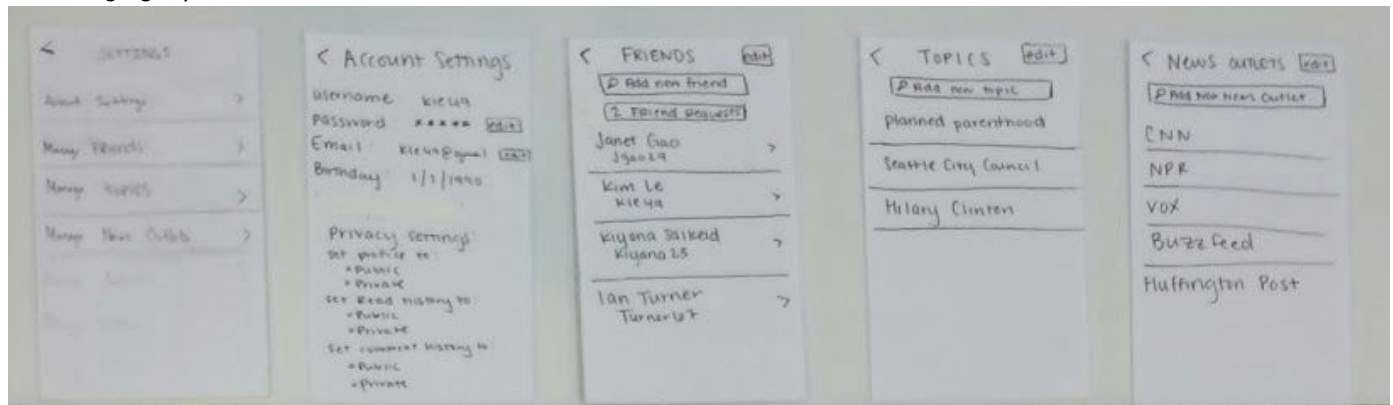 < SETTINGS
Account Settings >
Manage Friends >
Manage TOPICS >
Manage News Outlets >
< Account Settings
username kieu9
Password ***** edit
Email kieu9@gmail edit
Birthday 1/1/1990
Privacy Settings:
set profile to:
• Public
• Private
Set Read History to:
• Public
• Private
Set comment history to:
• Public
• Private
< FRIENDS edit
Add new friend
2 Friend Requests
Janet Gao >
Jgao29
Kim Le >
kieu9
Kiyana Salkeld >
Kiyana25
Ian Turner >
Turner67
< TOPICS edit
Add new topic
planned parenthood
Seattle City Council
Hilary Clinton
< NEWS OUTLETS edit
Add New News Outlet
CNN
NPR
VOX
Buzzfeed
Huffington Post